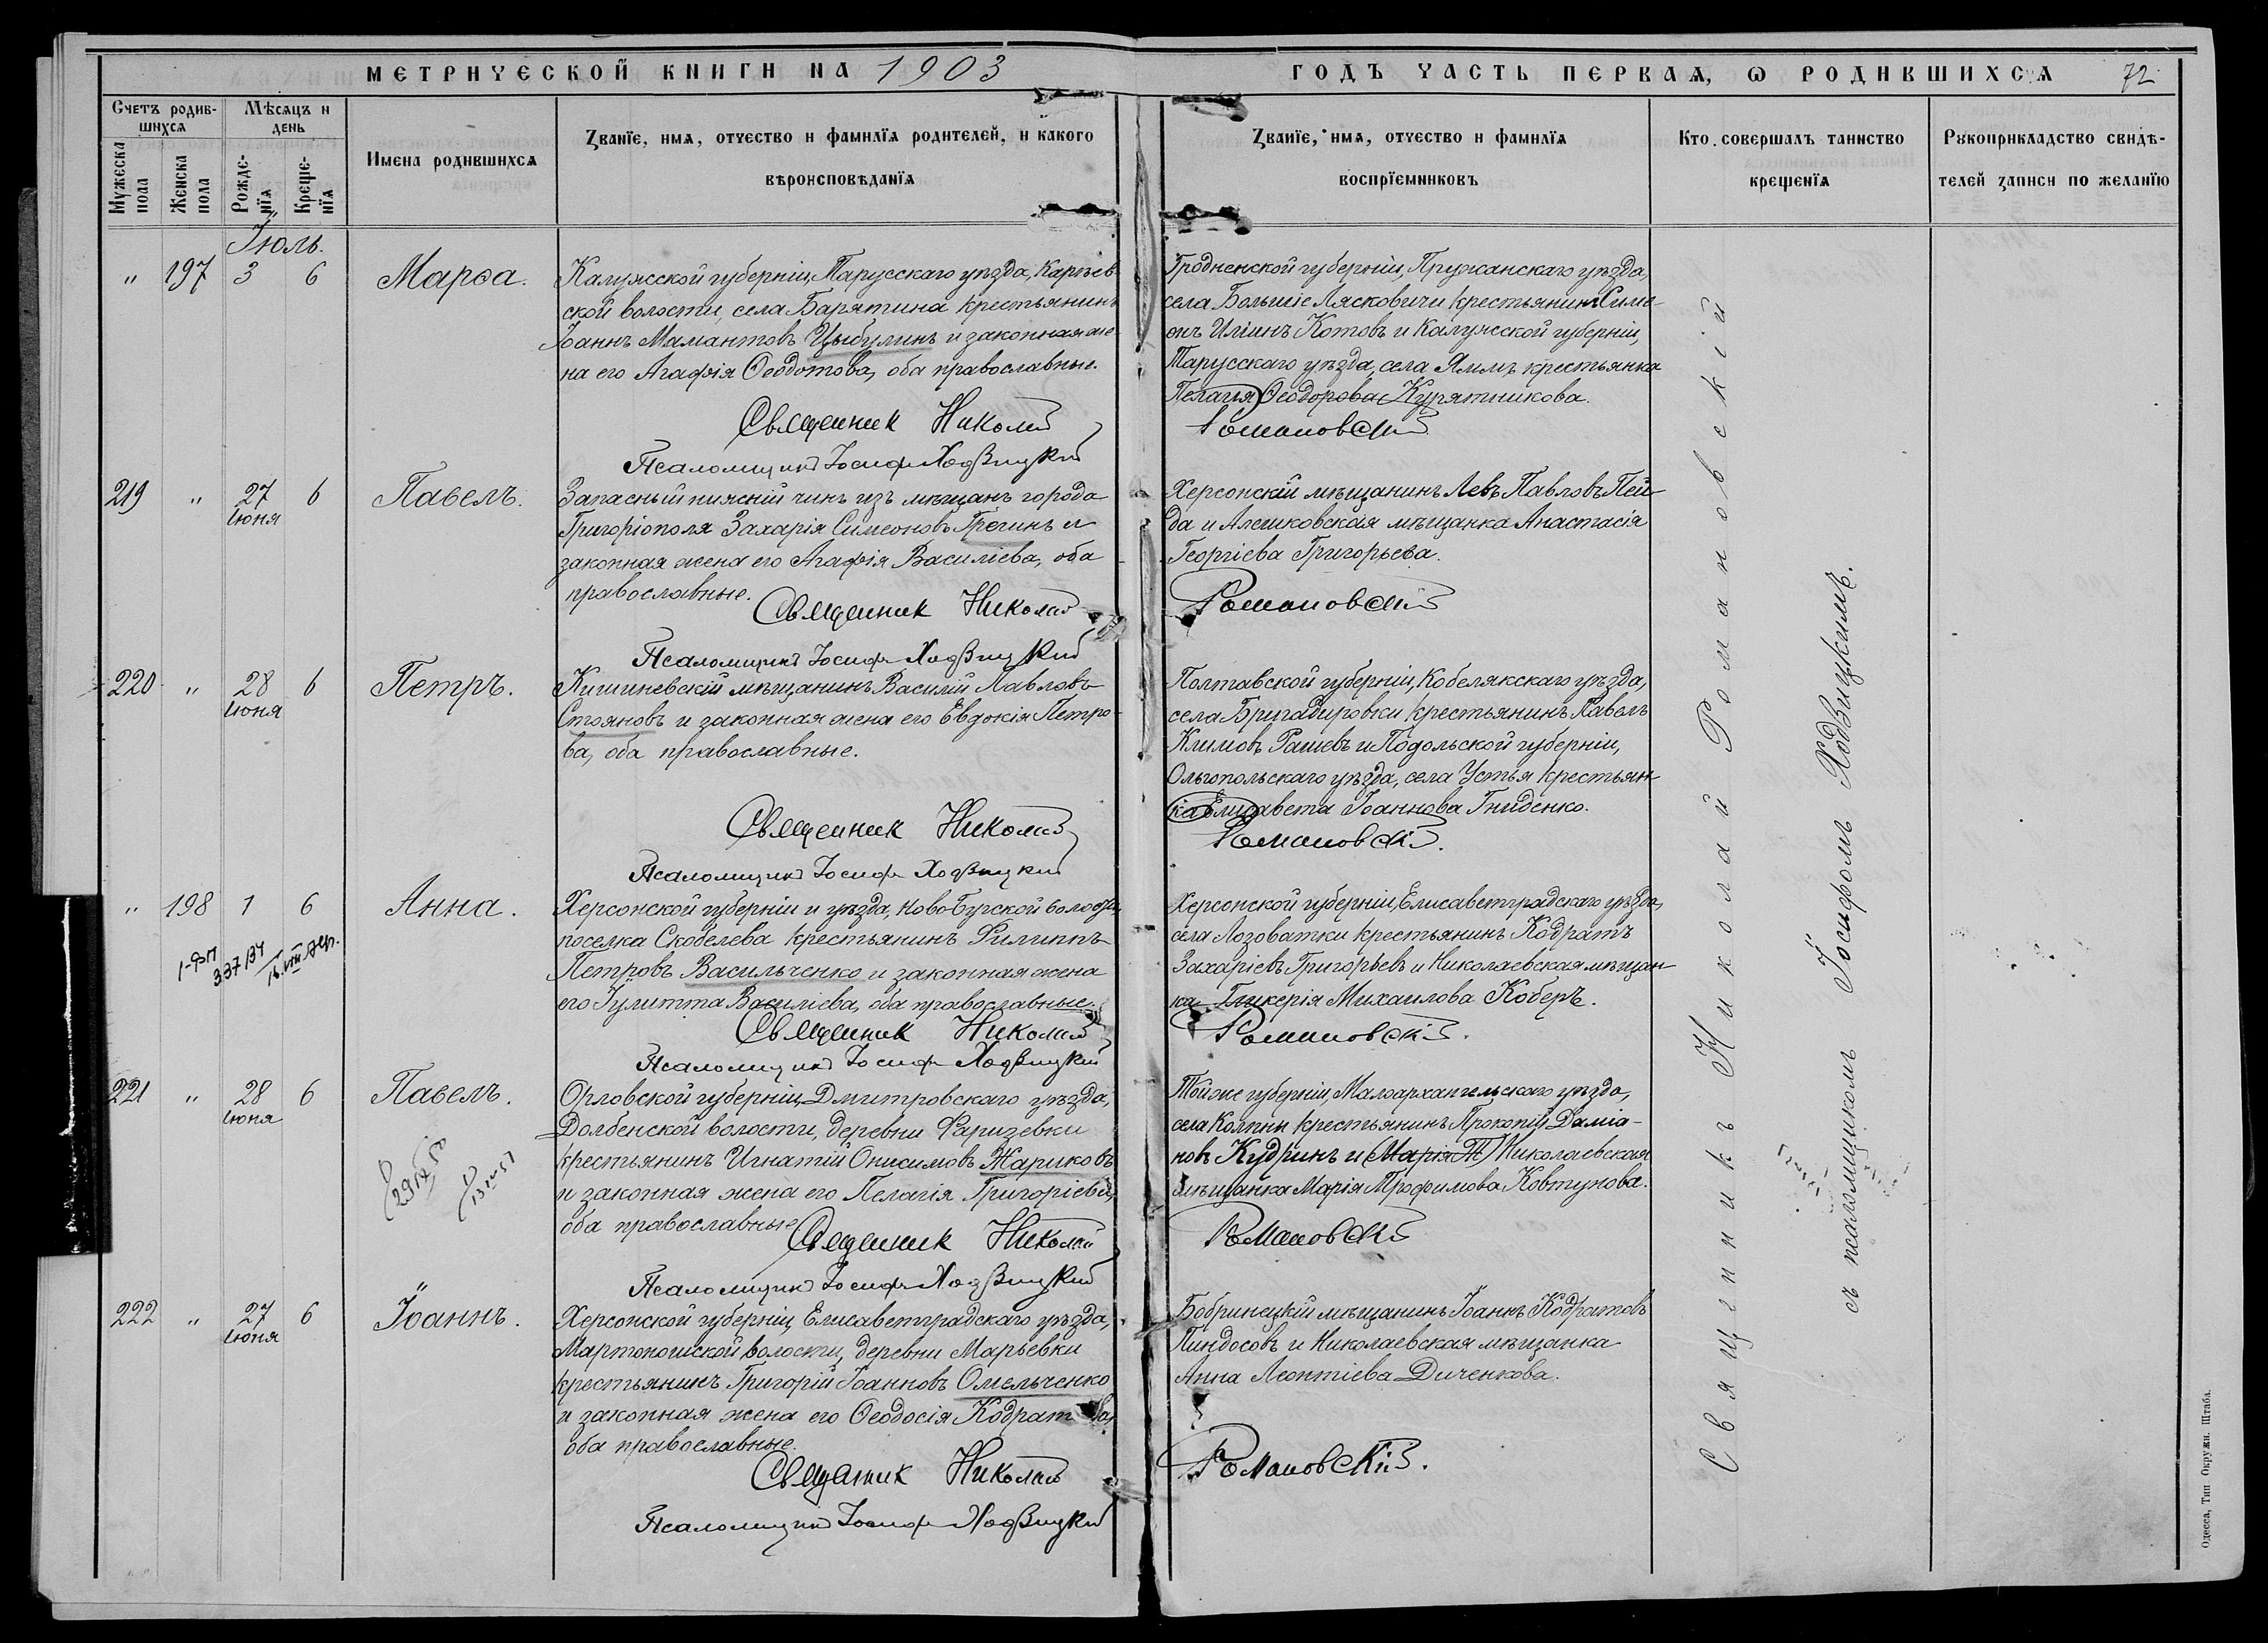 МЕТРИЧЕСКОЙ КНИГИ НА 1903
ГОДЪ ЧАСТЬ ПЕРВАЯ, Ѡ РОДИВШИХСЯ 72
Счетъ родив-
шихся
Мѣсяцъ и
день
Мужеска
пола
Женска
пола
Рожде-
нїя
Креще-
нїя
Имена родившихся
Званїе, имя, отчество и фамилїя родителей, и какого
вѣроисповѣданїя
Званїе, имя, отчество и фамилїя
воспрїемниковъ
Кто совершалъ таинство
крещенїя
Рукоприкладство свидѣ-
телей записи по желанїю
Іюль.
" 197 3 6 Марѳа.
Калужской губерніи, Тарусскаго уѣзда, Карѣев-
ской волости, села Барятина крестьянинъ
Іоаннъ Мамантовъ Цыбулинъ и законная же-
на его Агафія Ѳеодотова, оба православные.
Священник Николай
Псаломщикъ Іосифъ Ходзицкій
Гродненской губерніи, Пружанскаго уѣзда,
села Большіе Лясковичи крестьянинъ Симе-
онъ Иліинъ Котовъ и Калужской губерніи,
Тарусскаго уѣзда, села Ямъ крестьянка
Пелагія Ѳеодорова Курятникова.
Романовскій
219 " 27 6 Павелъ.
Іюня
Запасный нижній чинъ изъ мѣщанъ города
Григоріополя Захарія Симеоновъ Грегинъ и
законная жена его Агафія Василіева, оба
православные.
Священник Николай
Псаломщикъ Іосифъ Ходзицкій
Херсонскій мѣщанинъ Левъ Павловъ Пей-
да и Алешковская мѣщанка Анастасія
Георгіева Григорьева.
Романовскій
220 " 28 6 Петръ.
Іюня
Кишиневскій мѣщанинъ Василій Павловъ
Стояновъ и законная жена его Евдокія Петро-
ва, оба православные.
Священник Николай
Псаломщикъ Іосифъ Ходзицкій
Полтавской губерніи, Кобелякскаго уѣзда,
села Бригадировки крестьянинъ Павелъ
Климовъ Рашевъ и Подольской губерніи,
Ольгопольскаго уѣзда, села Устья крестьян-
ка Елисавета Іоаннова Гниденко.
Романовскій.
" 198 1 6 Анна.
Херсонской губерніи и уѣзда, Ново-Бугской волости,
поселка Скобелева крестьянинъ Филиппъ
Петровъ Васильченко и законная жена
его Іулитта Василіева, оба православные.
Священник Николай
Псаломщикъ Іосифъ Ходзицкій
Херсонской губерніи, Елисаветградскаго уѣзда,
села Лозоватки крестьянинъ Кодратъ
Захаріевъ Григорьевъ и Николаевская мѣщан-
ка Гликерія Михаилова Коберъ.
Романовскій.
221 " 28 6 Павелъ.
Іюня
Орловской губерніи, Дмитровскаго уѣзда,
Долбенской волости, деревни Фаризевки
крестьянинъ Игнатій Онисимовъ Жариковъ
и законная жена его Пелагія Григоріева,
оба православные.
Священник Николай
Псаломщикъ Іосифъ Ходзицкій
Той же губерніи, Малоархангельскаго уѣзда,
села Колпны крестьянинъ Прокопій Даміа-
новъ Кудринъ и (Марія Т) Николаевская
мѣщанка Марія Трофимова Ковтунова.
Романовскій
222 " 27 6 Іоаннъ.
Іюня
Херсонской губерніи, Елисаветградскаго уѣзда,
Мартоношской волости, деревни Марьевки
крестьянинъ Григорій Іоанновъ Омельченко
и законная жена его Ѳеодосія Кодратова,
оба православные.
Священник Николай
Псаломщикъ Іосифъ Ходзицкій
Бобринецкій мѣщанинъ Іоаннъ Кодратовъ
Пиндосовъ и Николаевская мѣщанка
Анна Леонтіева Диченкова.
Романовскій.
Священникъ Николай Романовскій
съ псаломщикомъ Іосифомъ Ходзицкимъ.
Одесса, Тип Окружн. Штаба.